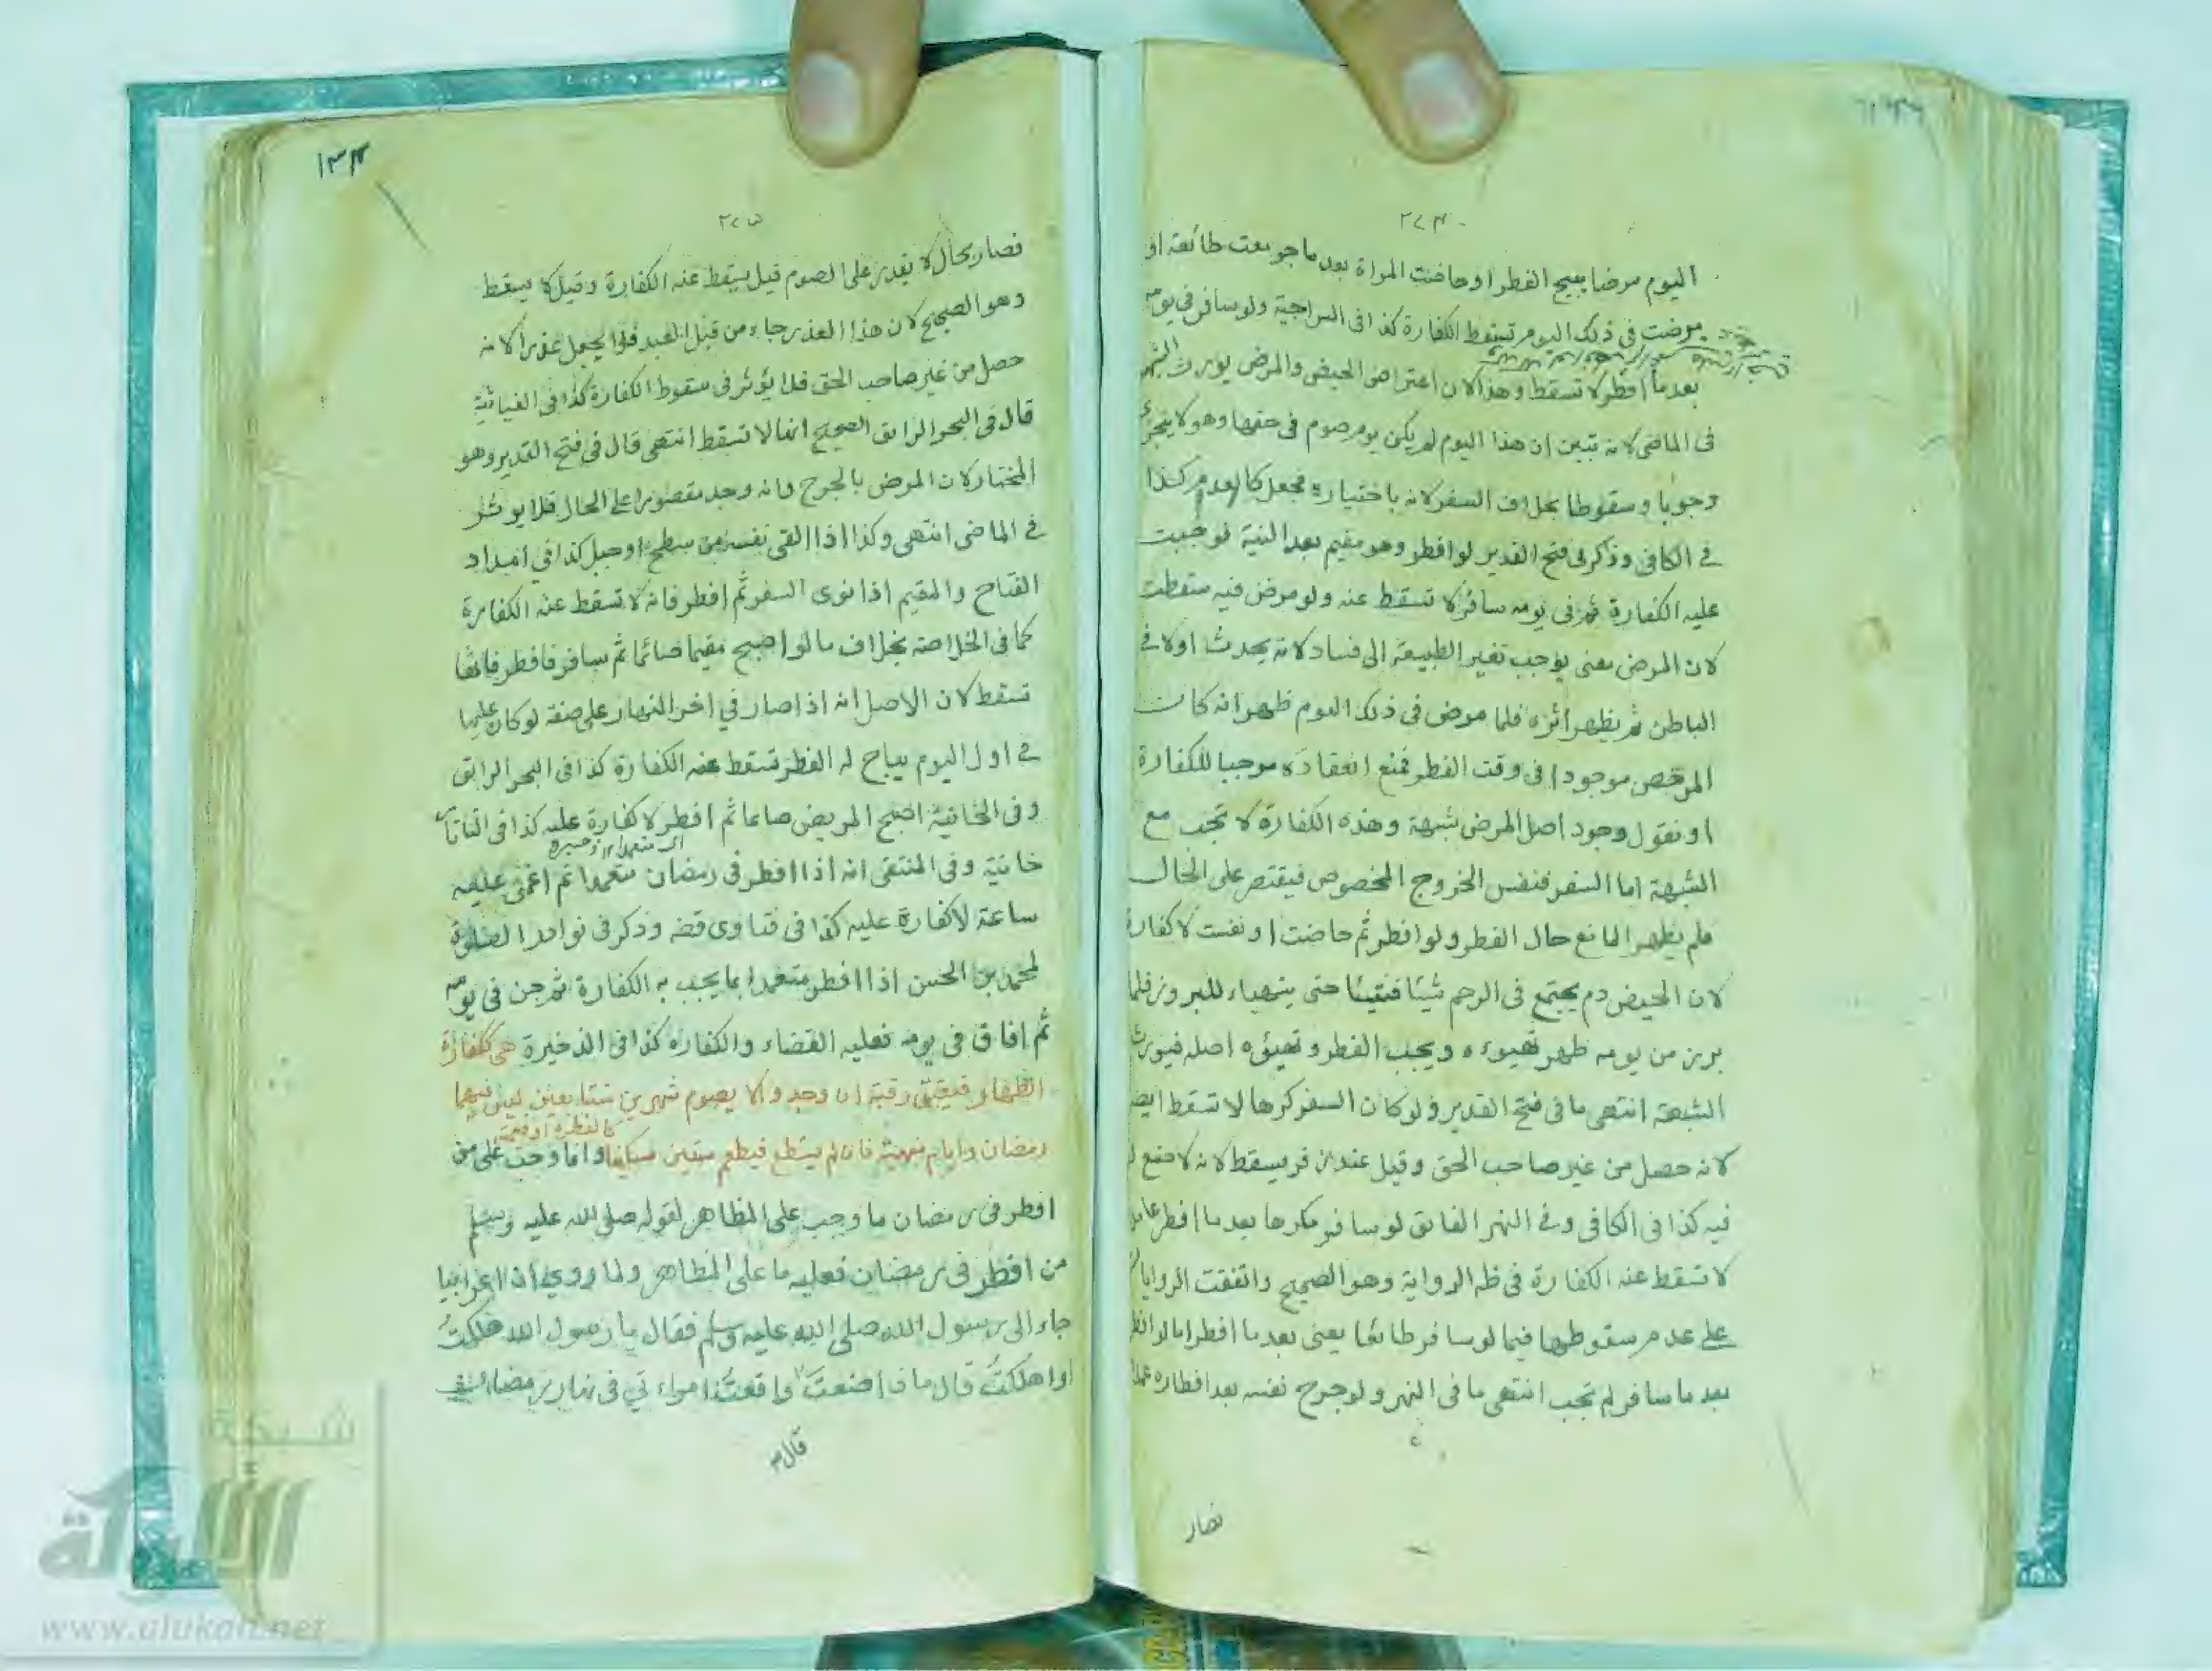 ٢٧٤
اليوم مرضا يبيح الفطر او حاضت المراة بعد ما جومعت طائعة او
مرضت في ذلك اليوم تسقط الكفارة كذا في السراجية ولو سافر في يومه
بعد ما افطر لا تسقط وهذا لان اعتراض الحيض والمرض يورث الشبهة
في الماضي لانه تبين ان هذا اليوم لم يكن يوم صوم في حقها وهو لا يتجزى
وجوبا وسقوطا بخلاف السفر لانه باختياره فجعل كالعدم كذا
في الكافي وذكر في فتح القدير لو افطر وهو مقيم بعد النية فوجبت
عليه الكفارة ثم في يومه سافر لا تسقط عنه ولو مرض فيه سقطت
لان المرض معنى يوجب تغير الطبيعة الى فساد لانه يحدث اولا في
الباطن ثم يظهر اثره فلما مرض في ذلك اليوم ظهر انه كان
المرخص موجودا في وقت الفطر فمنع انعقاده موجبا للكفارة
او نقول وجود اصل المرض شبهة وهذه الكفارة لا تجب مع
الشبهة اما السفر فنفس الخروج المخصوص فيقتصر على الحال
فلم يظهر المانع حال الفطر ولو افطر ثم حاضت او نفست لا كفارة
لان الحيض دم يجتمع في الرحم شيئا فشيئا حتى يتهياء للبروز فلما
برز من يومه ظهر تهيوءه ويجب الفطر وتهيئوه اصله فيورث
الشبهة انتهى ما في فتح القدير ولو كان السفر كرها لا تسقط ايضا
لانه حصل من غير صاحب الحق وقيل عند زفر يسقط لانه لا صنع له
فيه كذا في الكافي وفي النهر الفائق لو سافر مكرها بعد ما افطر عامدا
لا تسقط عنه الكفارة في ظه الرواية وهو الصحيح واتفقت الروايات
على عدم سقوطها فيما لو سافر طائعا يعني بعد ما افطر اما لو افطر
بعد ما سافر لم تجب انتهى ما في النهر ولو جرح نفسه بعد افطاره عمدا
فصار
١٣٤
٢٧٥
فصار بحال لا يقدر على الصوم قيل يسقط عنه الكفارة وقيل لا يسقط
وهو الصحيح لان هذا العذر جاء من قبل العبد فلا يجعل عذرا لانه
حصل من غير صاحب الحق فلا يؤثر في سقوط الكفارة كذا في الغياثية
قال في البحر الرائق الصحيح انها لا تسقط انتهى قال في فتح القدير وهو
المختار لان المرض بالجرح وانه وجد مقصورا على الحال فلا يوثر
في الماضي انتهى وكذا اذا القى نفسه من سطح او جبل كذا في امداد
الفتاح والمقيم اذا نوى السفر ثم افطر فانه لا تسقط عنه الكفارة
كما في الخلاصة بخلاف ما لو اصبح مقيما صائما ثم سافر فافطر فانها
تسقط لان الاصل انه اذا صار في اخر النهار على صفة لو كان عليها
في اول اليوم يباح له الفطر تسقط عنه الكفارة كذا في البحر الرائق
وفي الخانية اصبح المريض صائما ثم افطر لا كفارة عليه كذا في التاتار
خانية وفي المنتقى انه اذا افطر في رمضان متعمدا ثم اغمي عليه
ساعة لا كفارة عليه كذا في فتاوى قضه وذكر في نوادر الصلوة
لمحمد بن الحسن اذا افطر متعمدا بما يجب به الكفارة ثم جن في يومه
ثم افاق في يومه فعليه القضاء والكفارة كذا في الذخيرة هي ككفارة
الظهار فيعتق رقبة ان وجد والا يصوم شهرين متتابعين ليس فيهما
كالفطرة او قيمته
رمضان وايام منهية فان لم يستطع فيطعم ستين مسكينا وانما وجب على من
افطر في رمضان ما وجب على المظاهر لقوله صلى الله عليه وسلم
من افطر في رمضان فعليه ما على المظاهر ولما روي ان اعرابيا
جاء الى رسول الله صلى الله عليه وسلم فقال يا رسول الله هلكت
واهلكت قال ماذا صنعت واقعت امراءتي في نهار رمضان
قال
شبكة
الألوكة
www.alukah.net